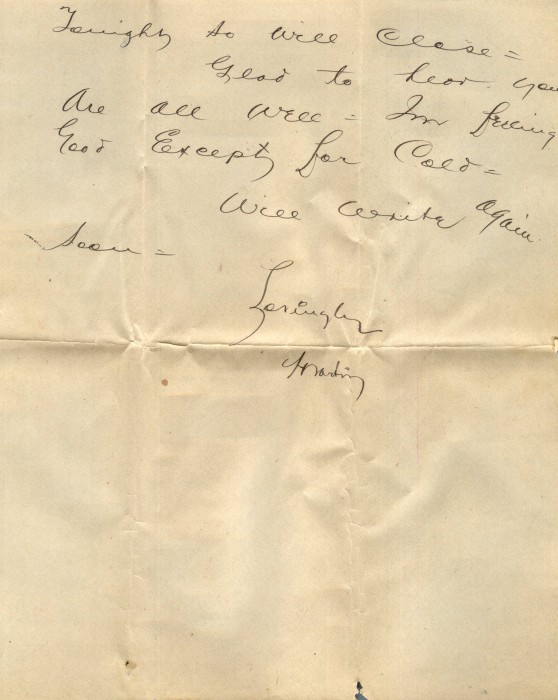 Tonight so will close =
Glad to hear you
Are all well = Im feeling
Good Except for Cold =
Will write Again
Soon =
Lovingly
Martin